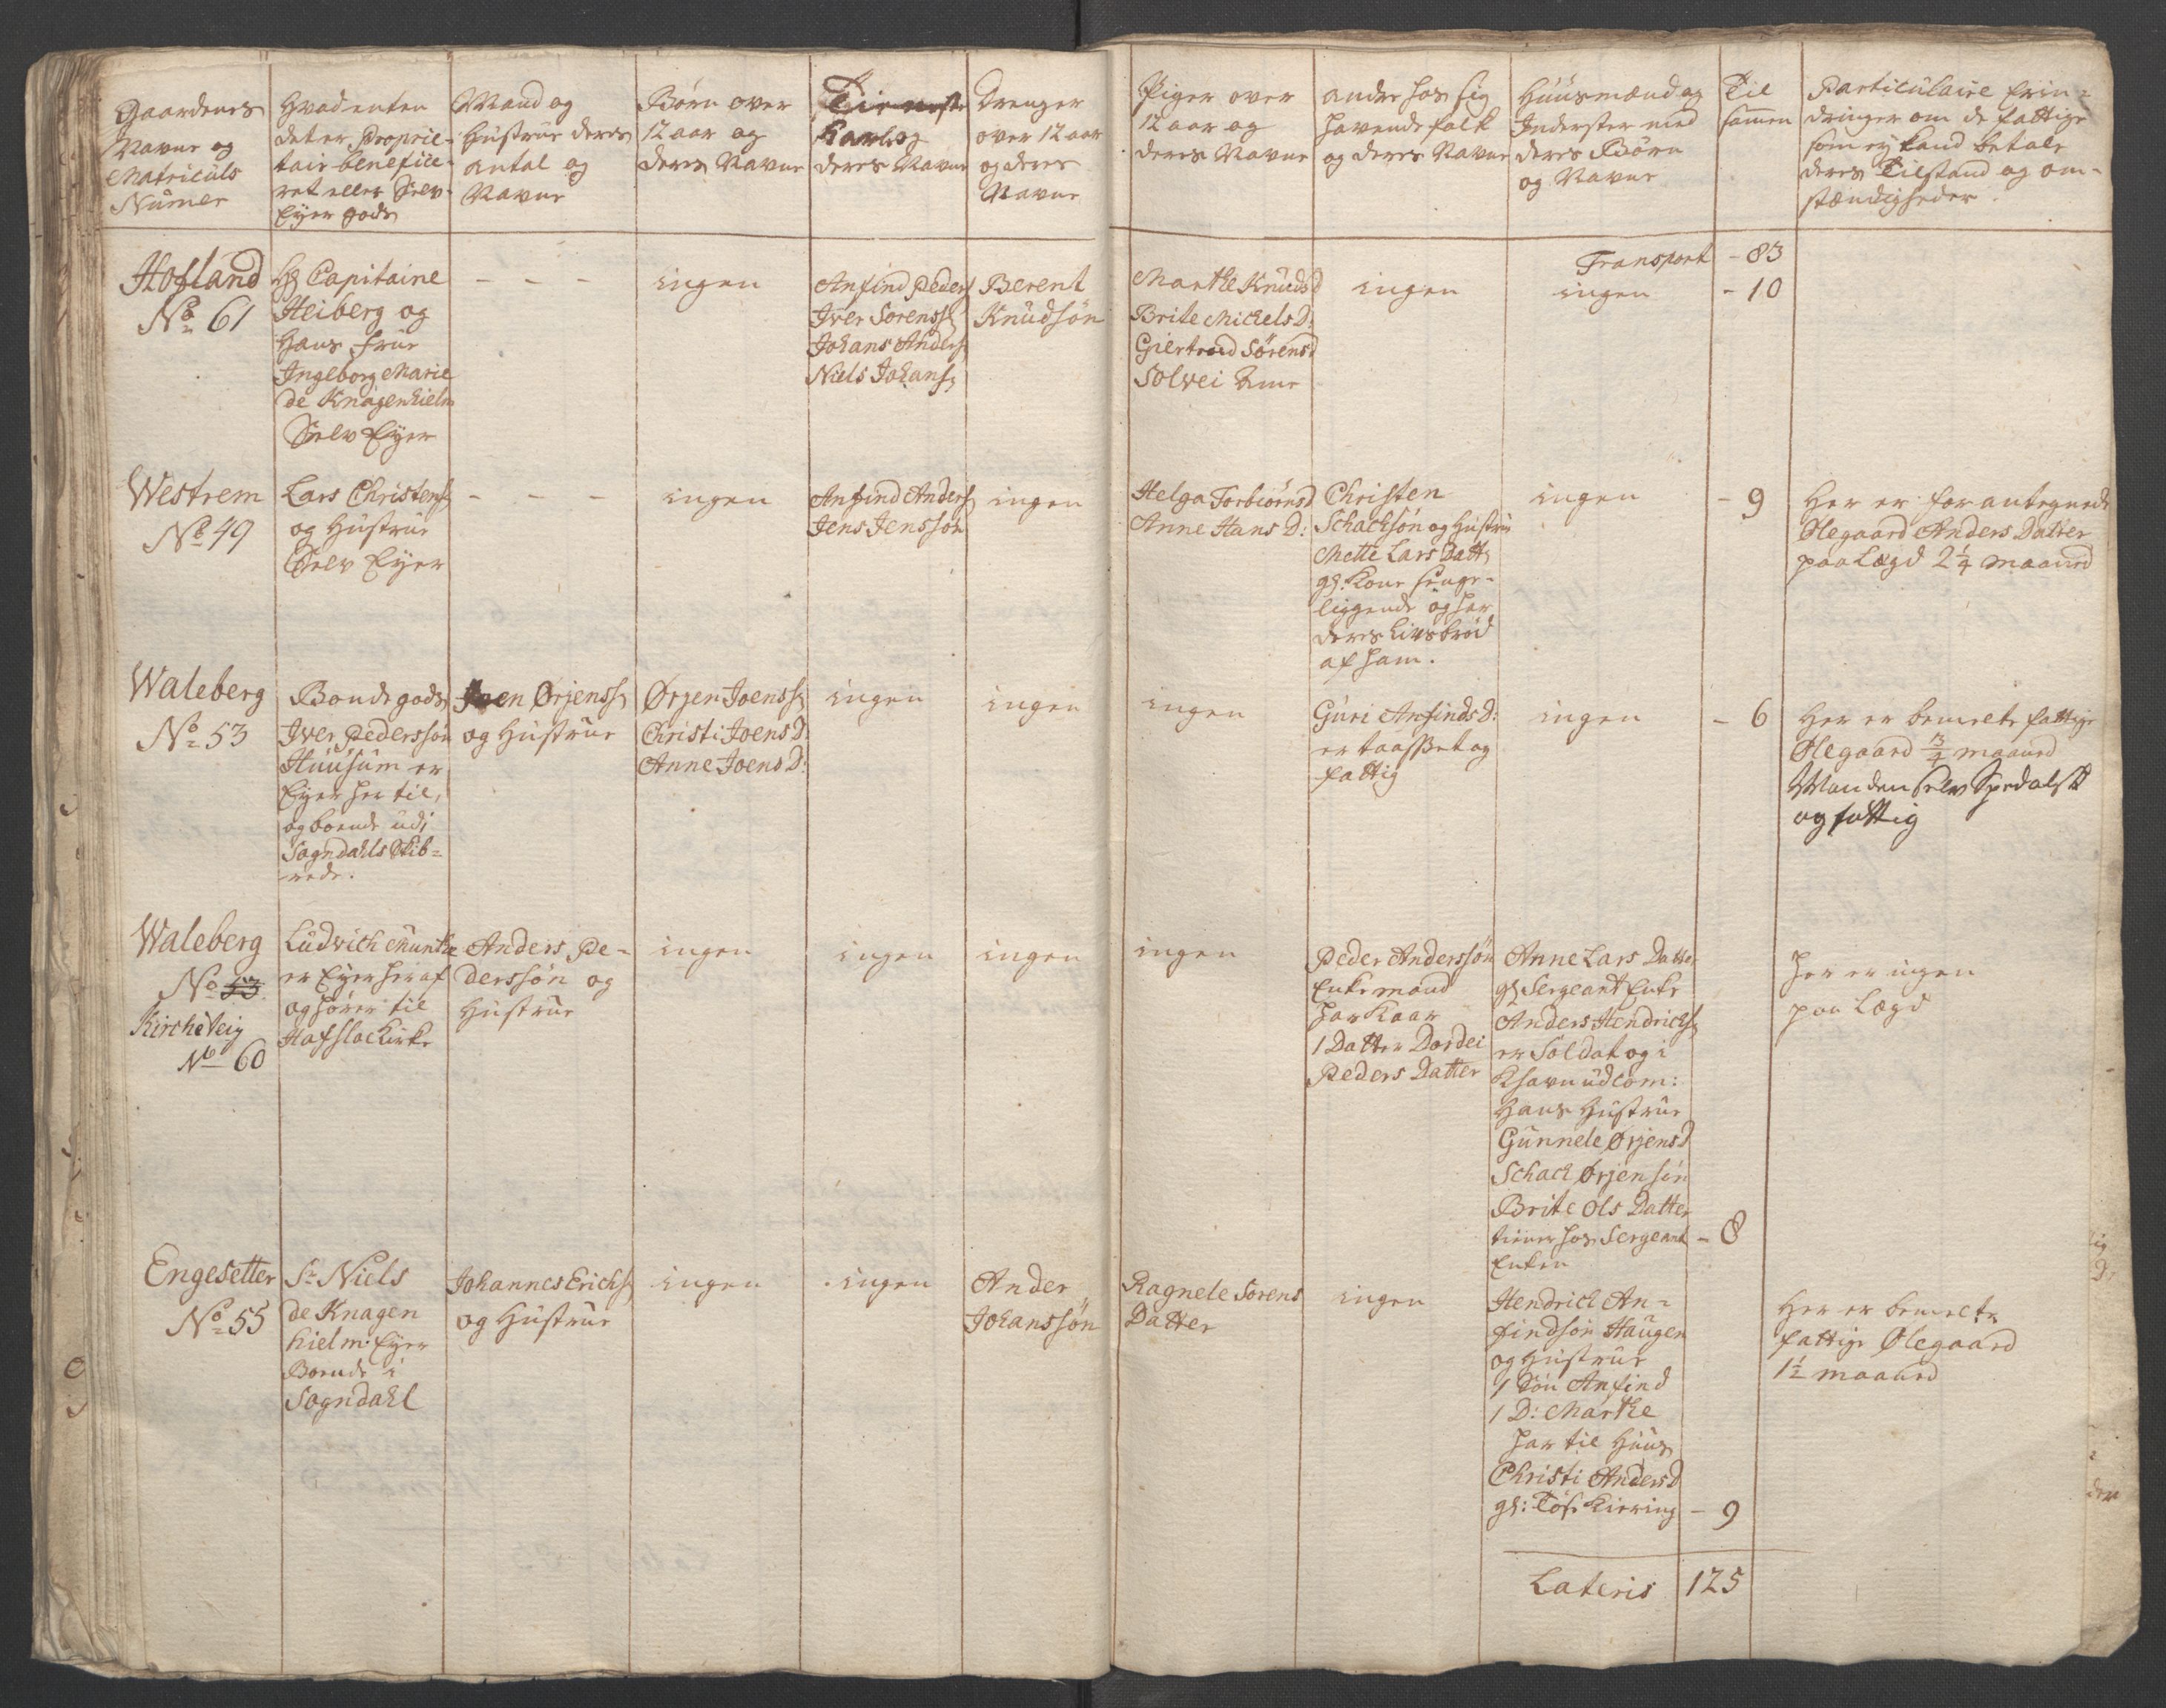 Gaardenes
Navne og
Matriculs
Numer
Hvad enten
det er Proprie-
tair benefice-
ret eller Selv-
Eyer gods
Mand og
Hustrue deres
antal og
Navne
Børn over
12 aar og
deres Navne
Tieneste
Karle og
deres Navne
Drenger
over 12 aar
og deres
Navne
Piger over
12 aar og
deres Navne
andre hos sig
havende folk
og deres Navne
Huusmænd og
Inderster med
deres Børn
og Navne
Til
sammen
Particulaire Erin-
dringer om de fattige
som ey kand betale
deres Tilstand og om-
stændigheder.
Transport - 83
Hofland
No 61
Hr Capitaine
Heiberg og
Hans Frue
Ingeborg Marie
de Knagenhielm
Selv Eyer
- - -
ingen
Anfind Peders
Iver Sorenss
Johans Anders
Niels Johans
Berent
Knudsøn
Marthe Knudsd
Brite Michels D:
Giertrud Sørensd
Solvei
ingen
ingen
- 10
Westrem
No 49
Lars Christens
og Hustrue
Selv Eyer
- - -
ingen
Anfind Anders
Jens Jenssøn
ingen
Helga Torbiørnsd
Anne Hans D:
Christen
Schacksøn og Hustrue
Mette Lars Datt
gl: Kone senge-
liggende og har
deres Livsbrød
af ham.
ingen
- 9
Her er forantegnede
Olegaard Anders Datter
paa Lægd 2 1/4 maaned
Waleberg
No 53
Bondegods
Iver Pederssøn
Huusum er
Eyer her til,
og boende udi
Sogndahls Skib-
rede.
Joen Ørjenss
og Hustrue
Ørjen Joenss
Christi Joens D:
Anne Joens D:
ingen
ingen
ingen
Guri Anfinds D:
er taasset og
fattig
ingen
- 6
Her er bemelte fattige
Olegaard 3/4 maaned
Manden selv Spedalsk
og fattig
Waleberg
No 53
Kircheteig
No 60
Ludvich Munthe
er Eyer her af
og hører til
Hafslae Kirke
Anders Pe-
derssøn og
Hustrue
ingen
ingen
ingen
ingen
Peder Anderssøn
Enkemand
har Kaar
1 Datter Dordei
Peders Datter
Anne Lars Datter
gl Sergeant Enke
Anders Hendrichs
er Soldat og i
Khavn udcom:
Hans Hustrue
Gunnele Ørjensd
Schack Ørjensøn
Brite Ols Datter
tiener hos Sergeant
Enken
- 8
her er ingen
paa Lægd
Engesetter
No 55
Sr Niels
de Knagen
hielm: Eyer
Boende i
Sogndahl
Johannes Erichs
og Hustrue
ingen
ingen
Ander
Johanssøn
Ragnele Sorens
Datter
ingen
Hendrich An-
findsøn Haugen
og Hustrue
1 Søn Anfind
1 D: Marthe
har til Huus
Christi Andersd
gl: Tøs Kiering
- 9
Her er bemelte
fattige Olegaard
1 1/2 maaned
Lateris 125